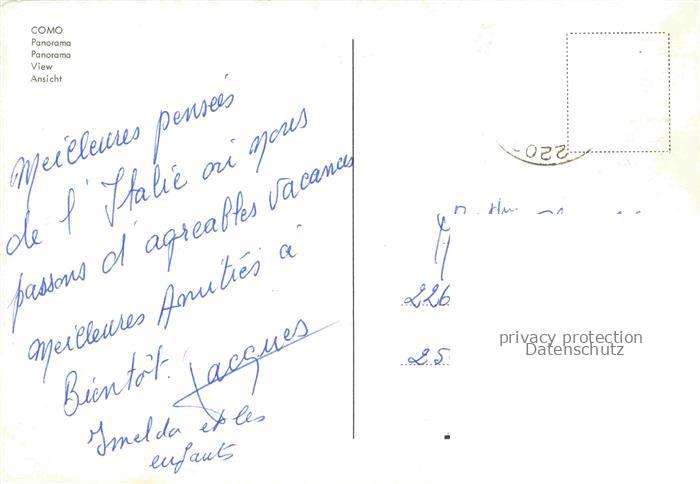 COMO
Panorama
Panorama
View
Ansicht
Meilleures pensées
de l'Italie où nous
passons d'agreables vacances
Meilleures Amitiés à
Bientôt. Jacques
Imelda et les
enfants
220-
226
25
privacy protection
Datenschutz